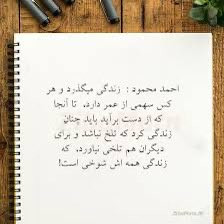 احمد محمود : زندگی میگذرد و هر
کس سهمی از عمر دارد. تا آنجا
که از دست برآید باید چنان
زندگی کرد که تلخ نباشد و برای
دیگران هم تلخی نیاورد. که
زندگی همه اش شوخی است!